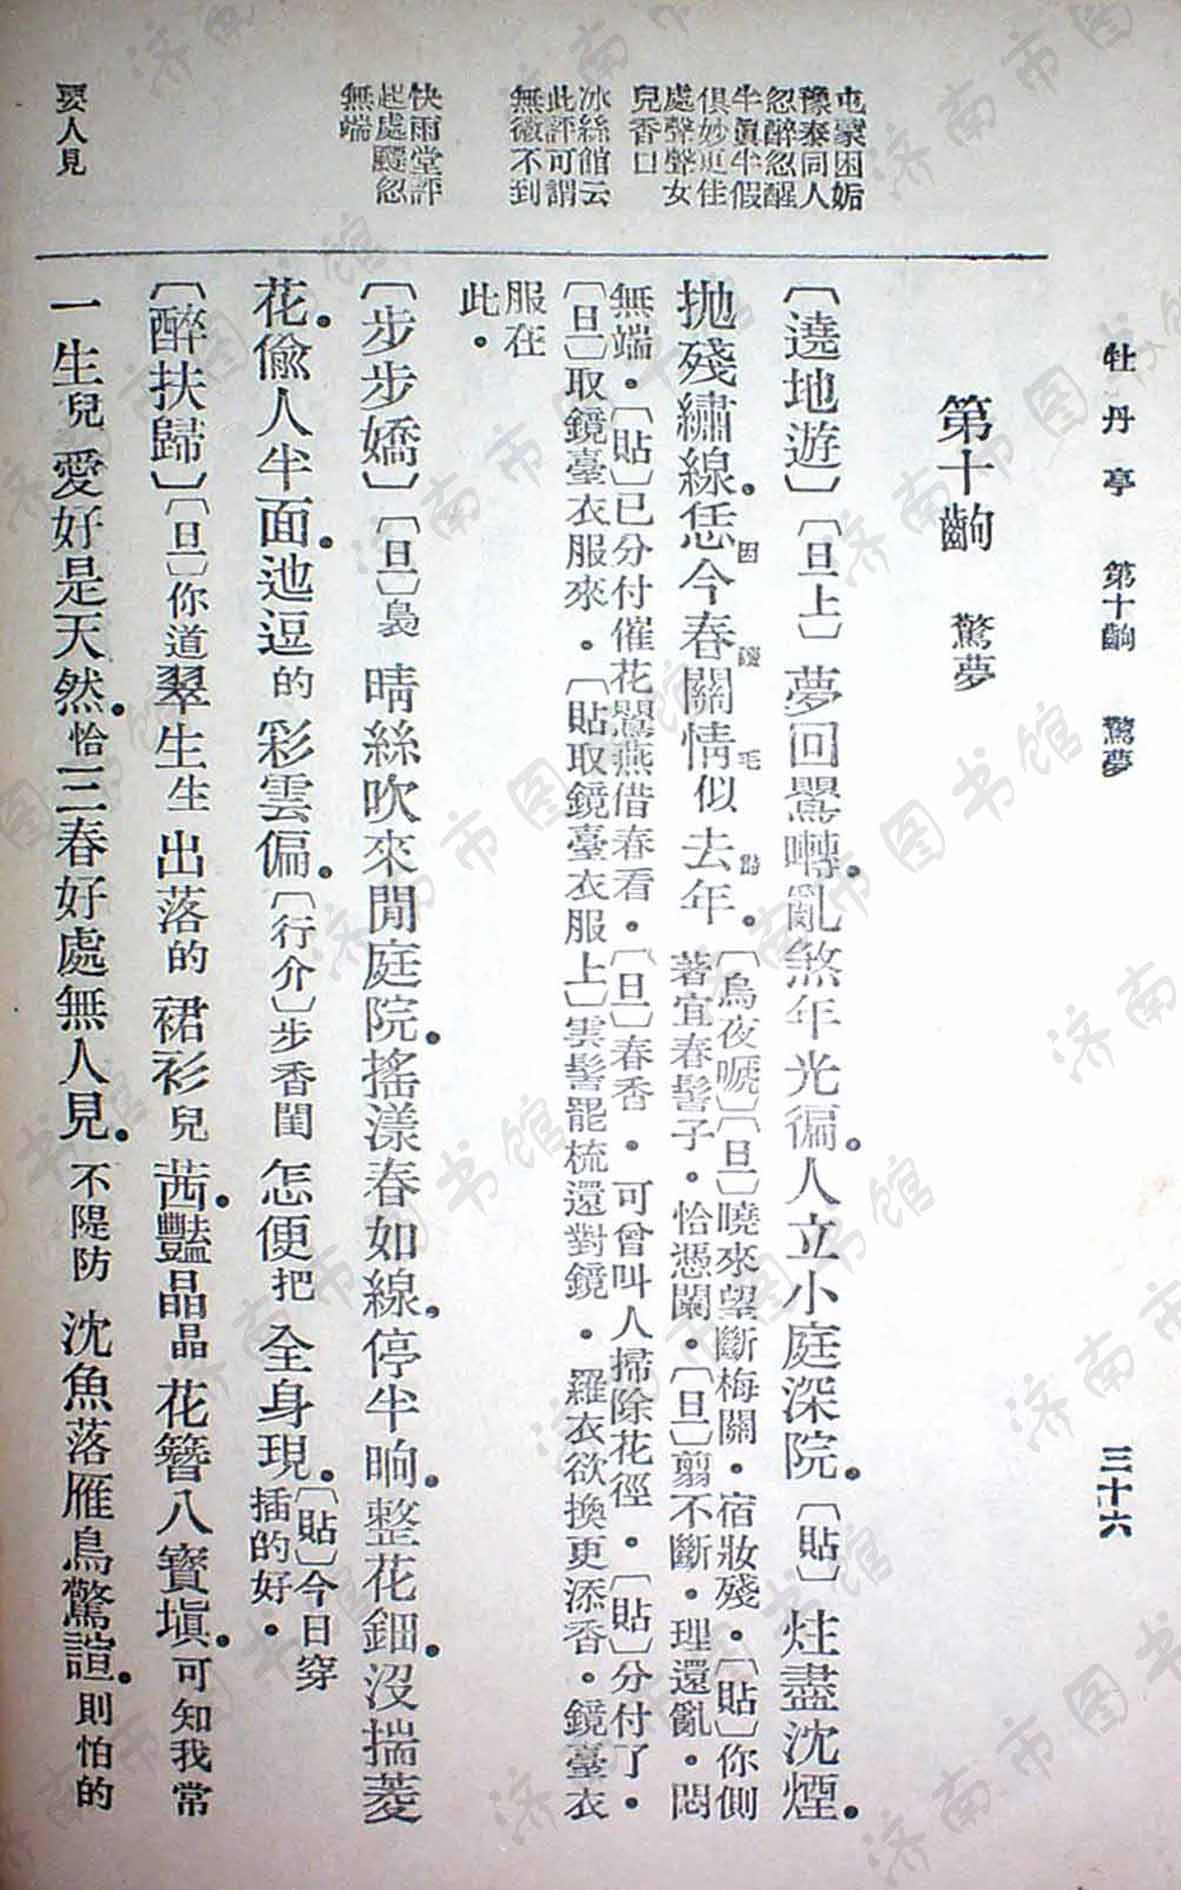 牡丹亭 第十齣 驚夢 三十六
第十齣 驚夢
屯蒙困姤
豫泰同人
忽醉忽醒
半眞半假
俱妙更佳
處聲聲女
兒香口
冰絲館云
此評可謂
無微不到
快雨堂評
起處飃忽
無端
要人見
〔遶地遊〕〔旦上〕夢回鶯囀.亂煞年光徧.人立小庭深院.〔貼〕炷盡沈煙.
拋殘繡線.恁今春關情似去年.
因
毛
〔烏夜嗁〕〔旦〕曉來望斷梅關.宿妝殘.〔貼〕你側
著宜春髻子.恰憑闌.〔旦〕翦不斷.理還亂.悶
無端.〔貼〕已分付催花鶯燕借春看.〔旦〕春香.可曾叫人掃除花徑.〔貼〕分付了.
〔旦〕取鏡臺衣服來.〔貼取鏡臺衣服上〕雲髻罷梳還對鏡.羅衣欲換更添香.鏡臺衣
服在
此.
〔步步嬌〕〔旦〕裊晴絲吹來閒庭院.搖漾春如線.停半晌.整花鈿.沒揣菱
花.偸人半面.迤逗的彩雲偏.〔行介〕步香閨怎便把全身現.〔貼〕今日穿
插的好.
〔醉扶歸〕〔旦〕你道翠生生出落的裙衫兒茜.豔晶晶花簪八寶塡.可知我常
一生兒愛好是天然.恰三春好處無人見.不隄防沈魚落雁鳥驚諠.則怕的
济南市图书馆